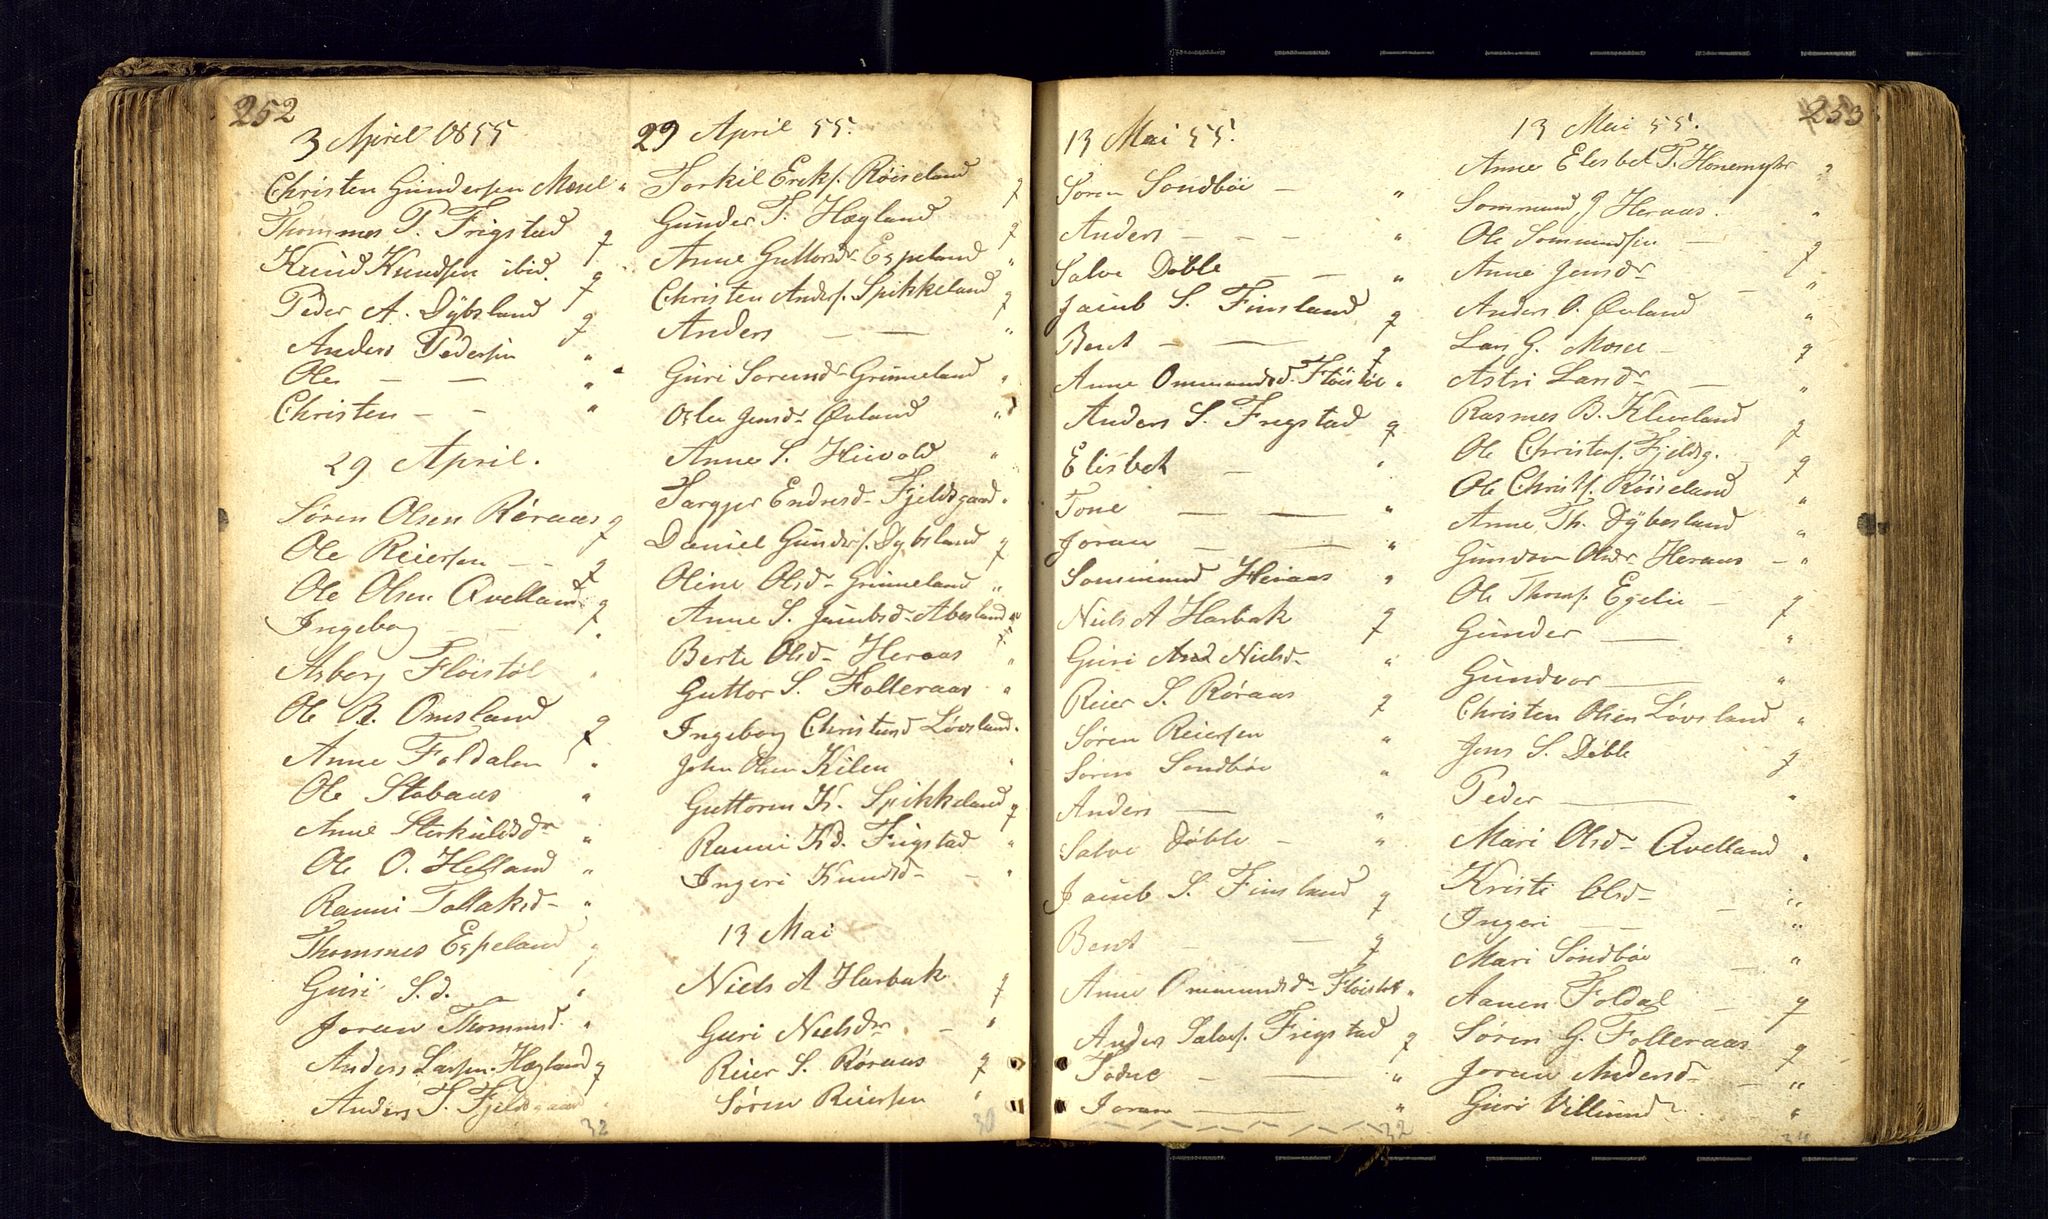 252
3 April 1855
Christen Gundersen Mosel "
Thommes P. Frigstad g
Knud Knudsen ibid. g
Peder A. Dybsland g
Anders Pedersen "
Ole — — "
Christen — — "
29 April.
Søren Olsen Røraas g
Ole Reiersen — — g
Ole Olsen Qvelland g
Ingebog — — "
Asborg Fløistøl "
Ole B. Omsland g
Anne Foldalen "
Ole Stabaas "
Anne Sterkulsdr "
Ole O. Helland "
Ranni Tollaksd "
Thommes Espeland g
Guri S.d. "
Joran Thommsd. "
Anders Larsen Hægland g
Anders T. Fjeldsgaard "
32
29 April 55.
Torkil Eriks. Røiseland g
Gunder T. Hægland g
Anne Guttorsdr Espeland "
Christen Anders. Spikkeland g
Anders — — "
Guri Sorensdr Grimeland "
Jensdr Øvland "
Anne S. Heivold "
Endresd Fjeldsgaard "
Daniel Gunders. Dybsland g
Oline Olsd Grimeland "
Anne S. Jacobsd Abesland
Berte Olsd Heraas "
Guttor S. Folleraas "
Ingebog Christensd Løvsland "
John Olsen Kilen "
Guttorm K. Spikkeland g
Ranni Kd. Frigstad "
Ingeri Knudsd — "
13 Mai
Niels A Harbak g
Guri Nielsdr — "
Reier S. Røraas g
Søren Reiersen "
30
13 Mai 55.
Søren Sondbøe — "
Anders — — — "
Salve Døble — — "
Jacob S. Finsland g
Bent — — g
Anne Ommundsd. Fløistøl "
Anders S. Frigstad g
Elisbet — "
Tone — — "
Joran — — "
Sommund Heraas "
Niels A Harbak g
Guri And Nielsd "
Reier S. Røraas g
Søren Reiersen "
Søren Sondbøe "
Anders — "
Salve Døble — "
Jacob S. Finsland g
Bent — — g
Anne Ommundsd Fløistøl "
Anders Salves. Frigstad g
Todne — — "
Joran — "
32
253
13 Mai 55.
Anne Elesbet T. Honemyhr "
Sommund J Heraas. "
Ole Sommundsen — g
Anne Jensdr — "
Anders O. Øvland "
Lars G. Mosel — g
Astri Larsdr — "
Rasmes B. Kleveland g
Ole Christens. Fjeldsg. — g
Ole Christs. Røiseland "
Anne Th. Dybesland "
Gundvor Olsdr Heraas — "
Ole Thoms. Egelie — g
Gunder — "
Gundvor — "
Christen Olsen Løvsland "
Jens S. Døble g
Peder — "
Mari Olsd Qvelland "
Kristi Olsd — "
Ingeri — "
Mari Sondbøe — "
Aanen Foldal — g
Søren G. Folleraas g
Joran Andersd — "
Guri "